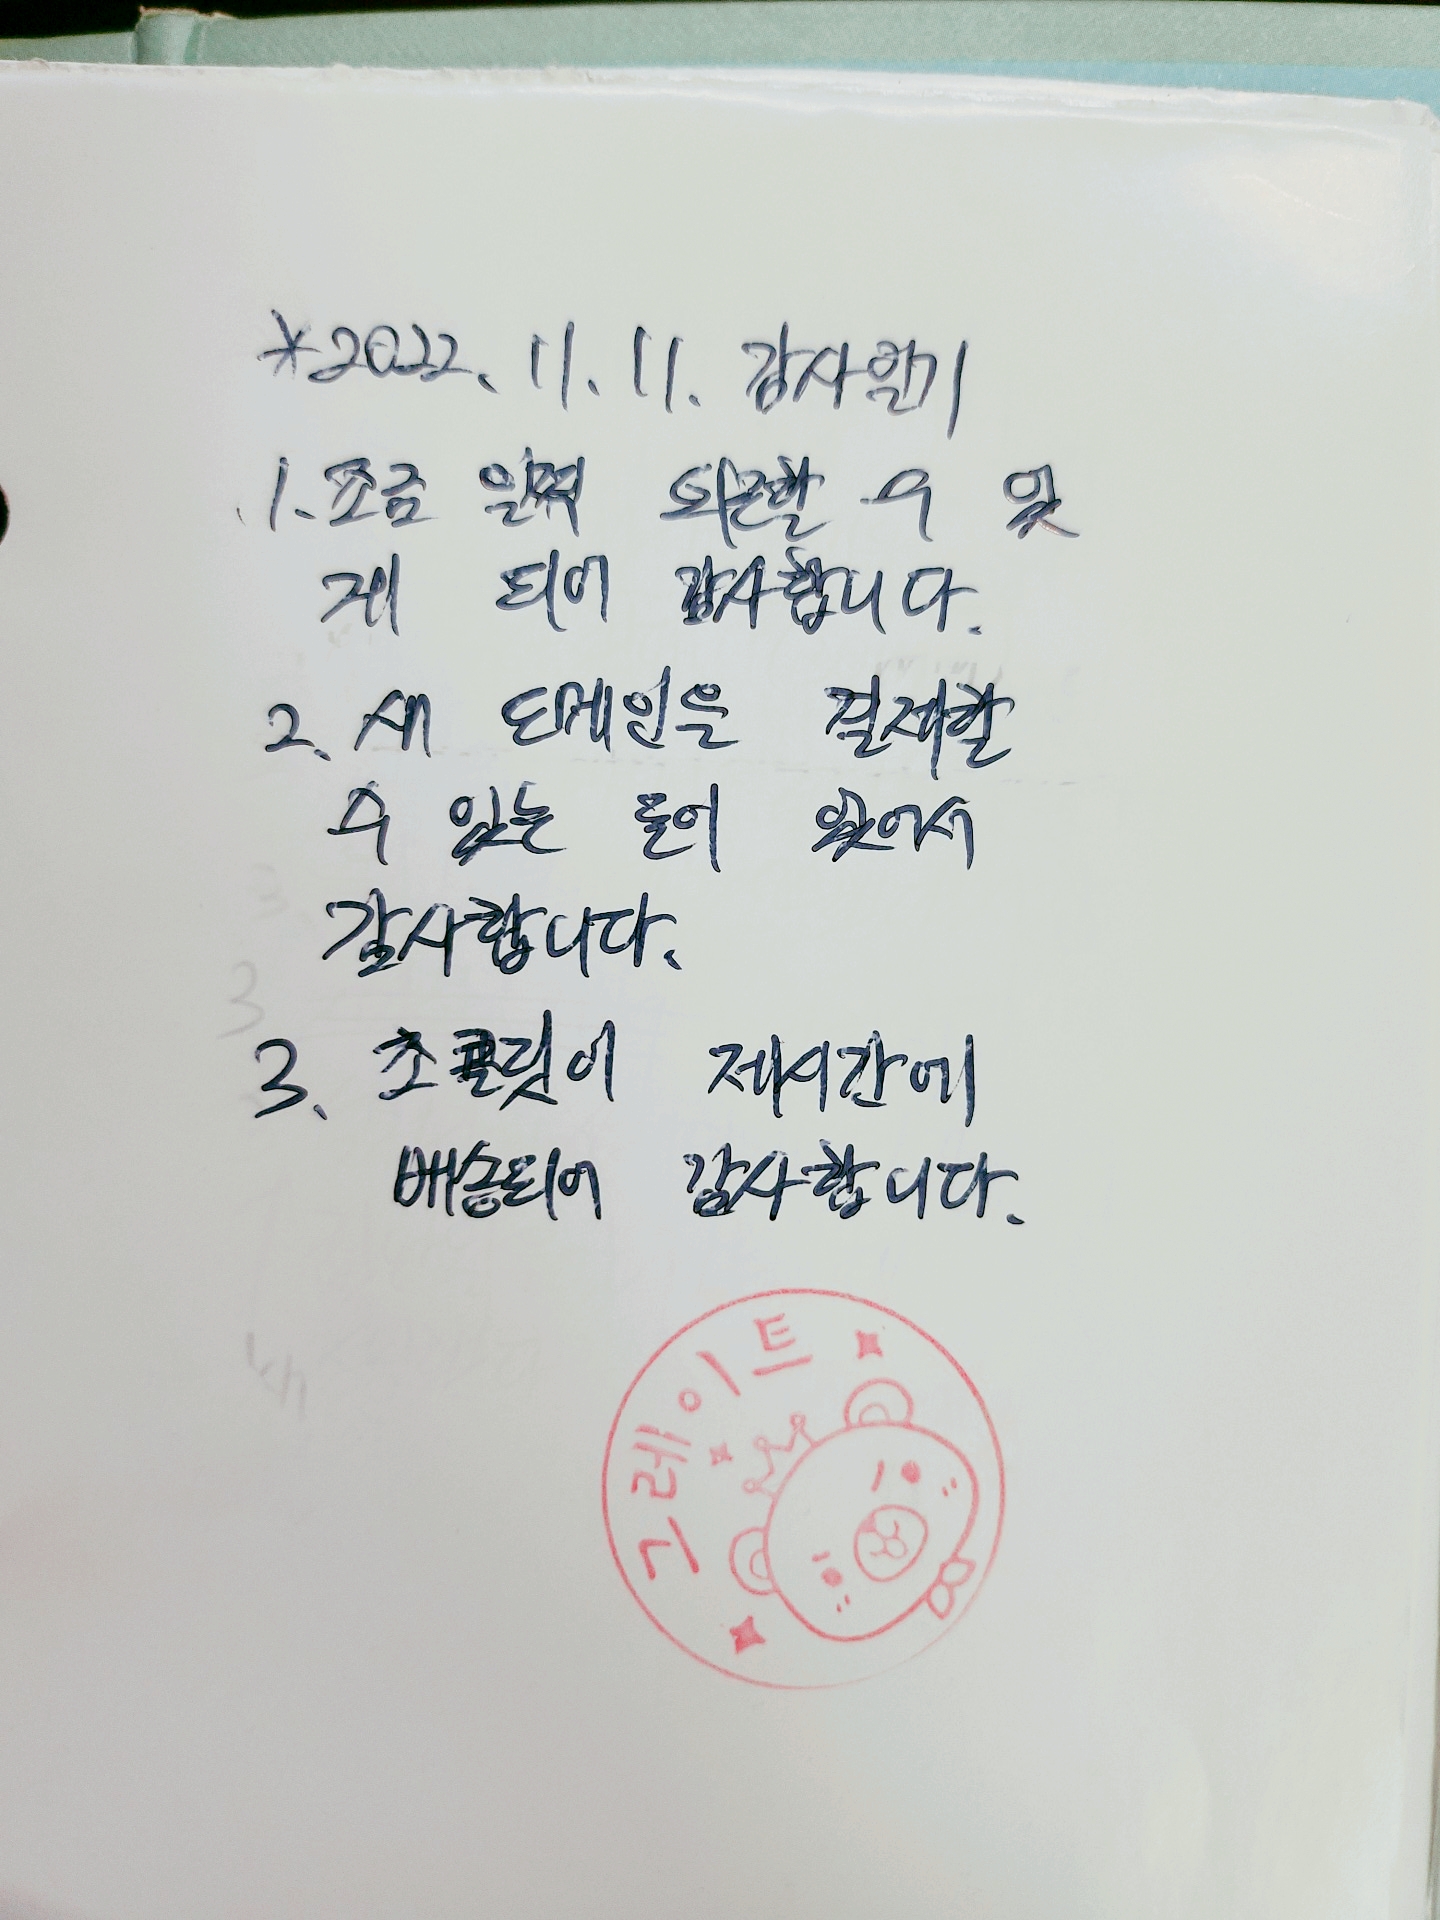 *2022. 11. 11. 감사일기
1. 조금 일찍 퇴근할 수 있
게 되어 감사합니다.
2. 새 도메인을 결제할
수 있는 돈이 있어서
감사합니다.
3. 초콜릿이 제시간에
배송되어 감사합니다.
그레이트